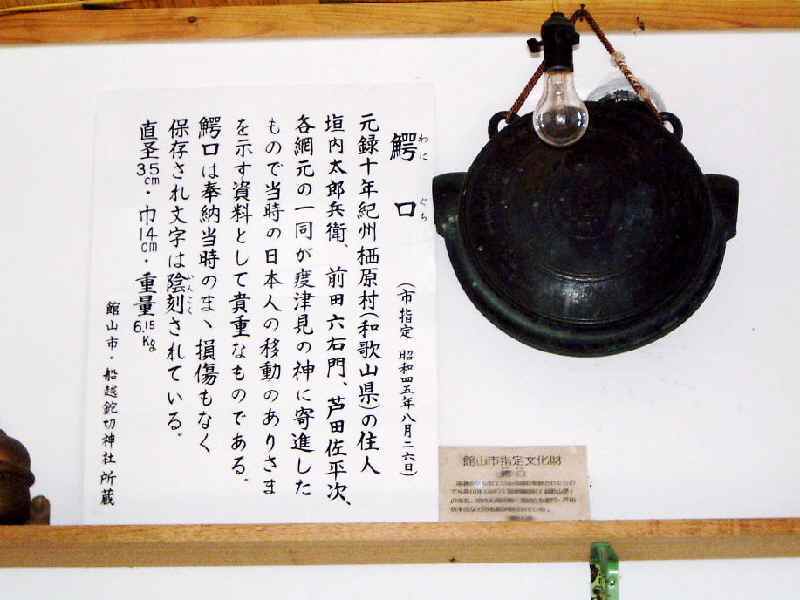 鰐口
わにぐち
(市指定 昭和四五年八月二六日)
元録十年紀州栖原村(和歌山県)の住人
垣内太郎兵衛、前田六右門、芦田佐平次、
各網元の一同が度津見の神に寄進した
もので当時の日本人の移動のありさま
を示す資料として貴重なものである.
鰐口は奉納当時のまゝ損傷もなく
保存され文字は陰刻されている.
いんこく
直圣35cm・巾14cm・重量6.15Kg
館山市・船越鉈切神社所蔵
館山市指定文化財